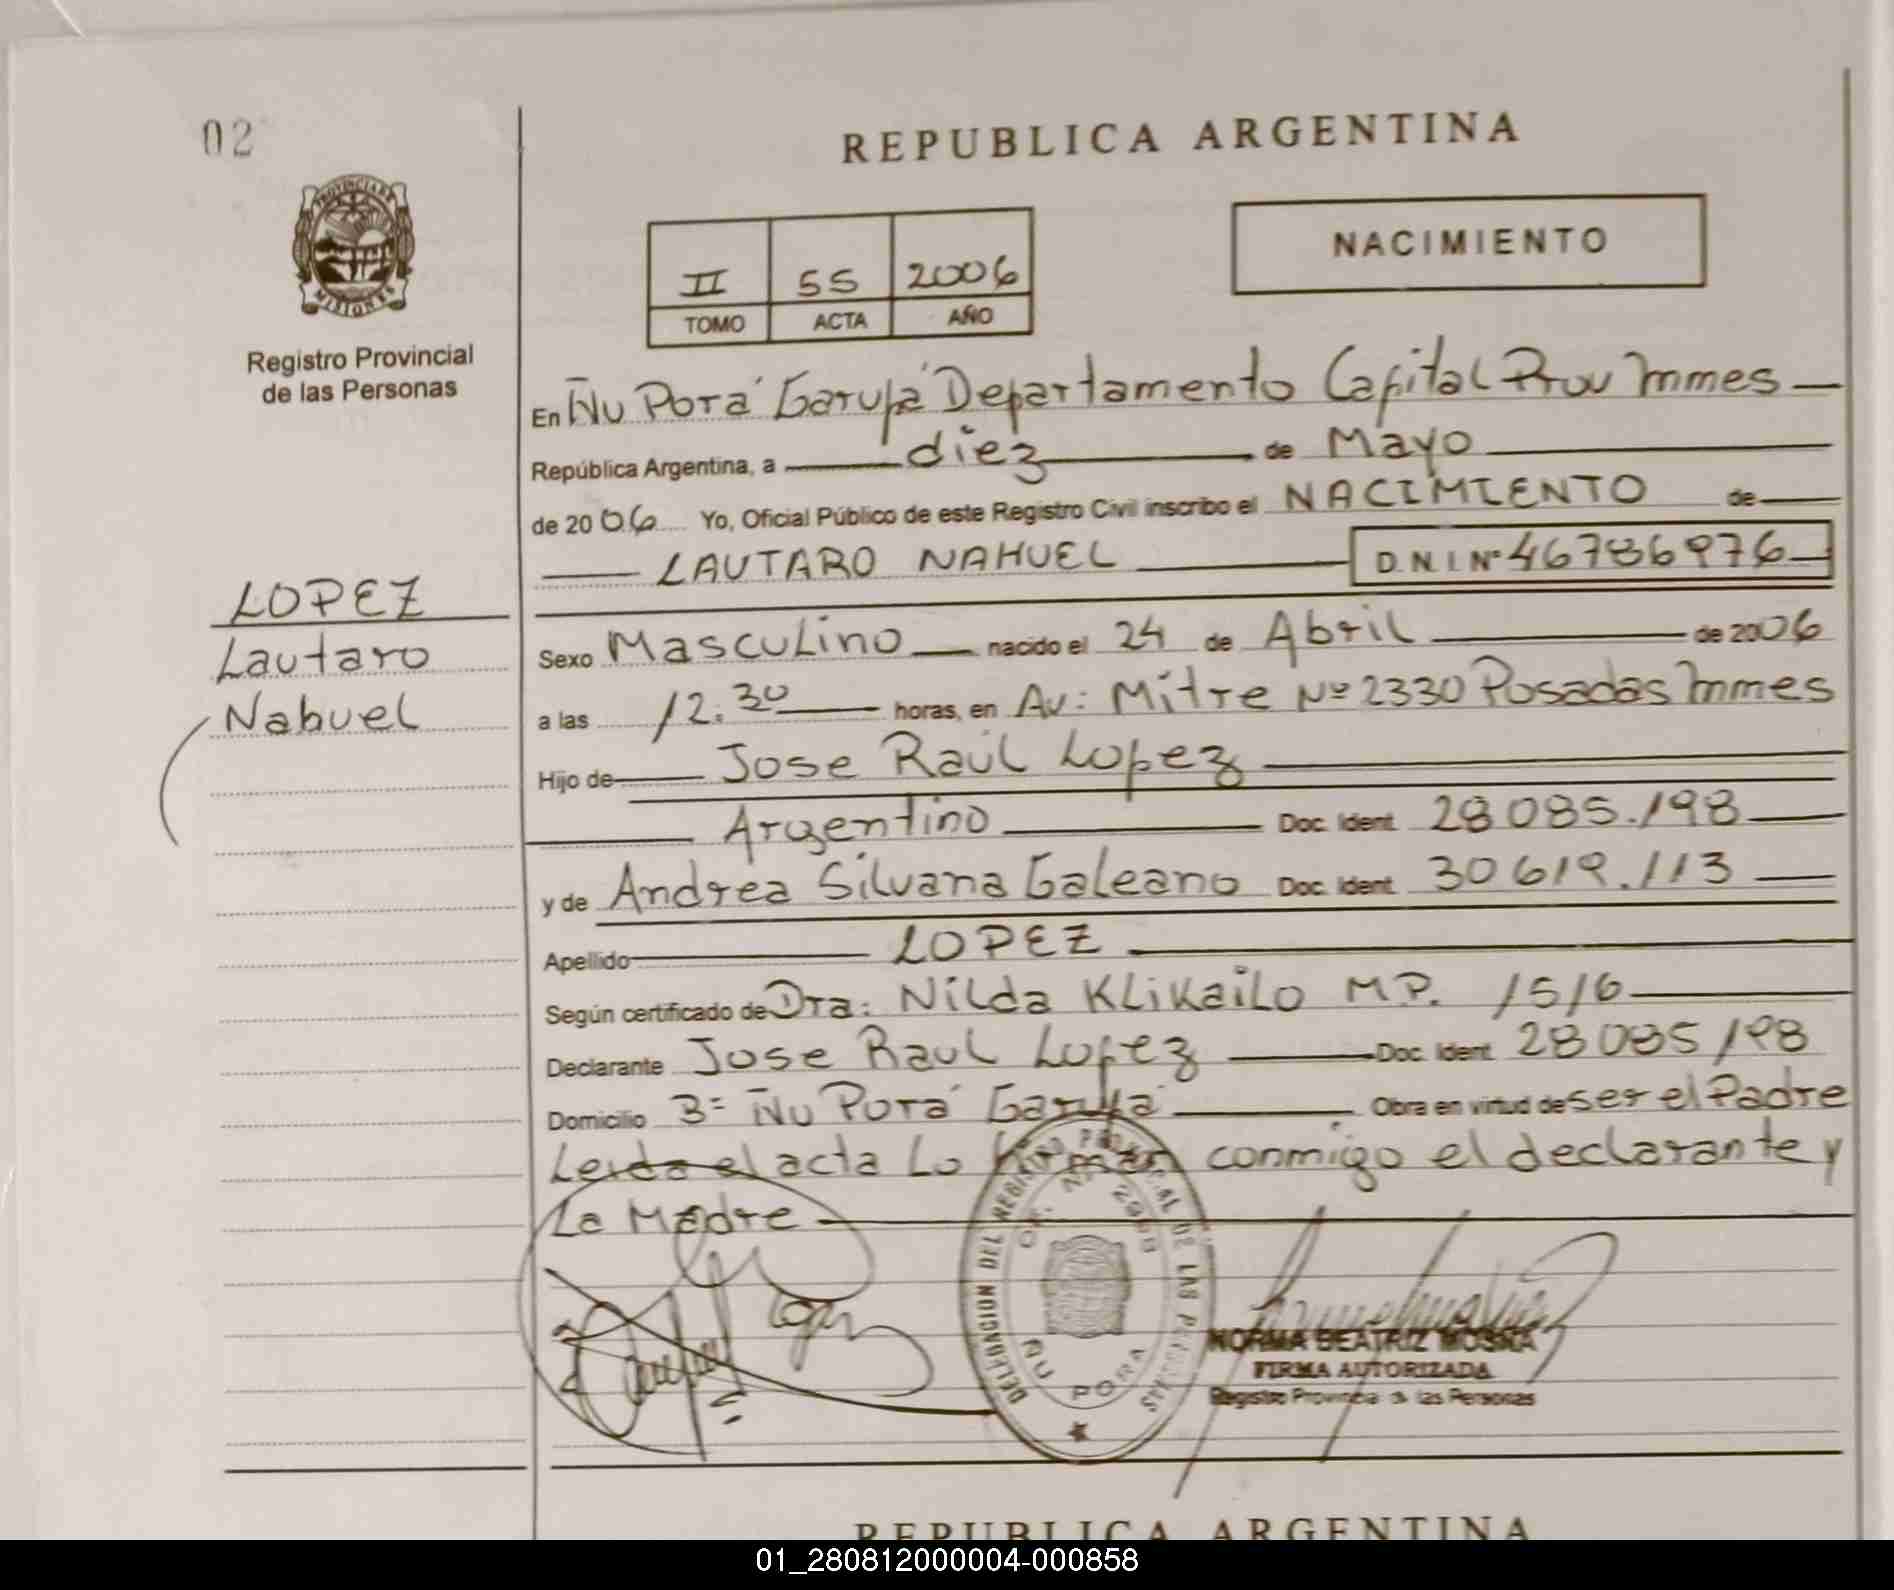 02
REPUBLICA ARGENTINA
PROVINCIA DE
MISIONES
Registro Provincial
de las Personas
II 55 2006
TOMO ACTA AÑO
NACIMIENTO
En Ñu Porá Garupá Departamento Capital Prov Mmes
República Argentina, a diez de Mayo
de 2006 Yo, Oficial Público de este Registro Civil inscribo el NACIMIENTO de
LAUTARO NAHUEL D.N.I Nº 46786976
LOPEZ
Lautaro
Nahuel
Sexo Masculino nacido el 24 de Abril de 2006
a las 12:30 horas, en Av: Mitre Nº 2330 Posadas Mmes
Hijo de Jose Raúl Lopez
Argentino Doc. Ident. 28085.198
y de Andrea Silvana Galeano Doc. Ident. 30619.113
Apellido LOPEZ
Según certificado de Dra: Nilda Klikailo MP. 1516
Declarante Jose Raul Lopez Doc. Ident. 28085198
Domicilio Bº Ñu Porá Garupá Obra en virtud de ser el Padre
Leida el acta Lo firman conmigo el declarante y
La Madre
DELEGACION DEL REGISTRO PROVINCIAL DE LAS PERSONAS
ÑU PORA
NORMA BEATRIZ MOSNA
FIRMA AUTORIZADA
Registro Provincial de las Personas
REPUBLICA ARGENTINA
01_280812000004-000858